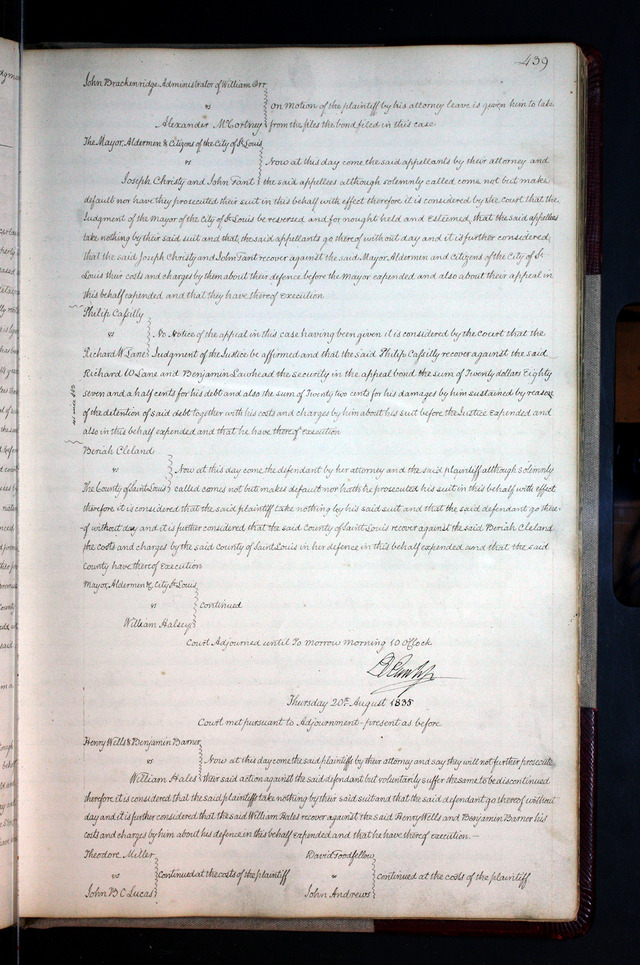 439
John Brackenridge Administrator of William Orr
vs
on motion of the plaintiff by his attorney leave is given him to take
Alexander McCortney from the files the bond filed in this case
The Mayor, Aldermen & Citizens of the City of St Louis
vs Now at this day come the said appellants by their attorney and
Joseph Christy and John Fant the said appellees although solemnly called come not but make
default nor have they prosecuted their suit in this behalf with effect therefore it is considered by the court that the
Judgment of the Mayor of the City of St Louis be reversed and for nought held and Esteemed, that the said appellees
take nothing by their said suit and that the said appellants go thereof without day and it is further considered
that the said Joseph Christy and John Fant recover against the said Mayor Aldermen and Citizens of the City of St
Louis their costs and charges by them about their defence before the Mayor expended and also about their appeal in
this behalf expended and that they have thereof execution
Philip Caffilly
vs No Notice of the appeal in this case having been given it is considered by the Court that the
Richard W Lane Judgment of the Justice be affirmed and that the said Philip Caffilly recover against the said
Richard W Lane and Benjamin Lawhead the security in the appeal bond the sum of Twenty dollars Eighty
seven and a half cents for his debt and also the sum of Twenty two cents for his damages by him sustained by reason
of the detention of said debt together with his costs and charges by him about his suit before the Justice Expended and
also in this behalf expended and that he have thereof execution
Beriah Cleland
vs Now at this day come the defendant by her attorney and the said plaintiff although solemnly
The County of Saint Louis called comes not but makes default nor hath he prosecuted his suit in this behalf with effect
therefore it is considered that the said plaintiff take nothing by his said suit and that the said defendant go there-
-of without day and it is further considered that the said County of Saint Louis recover against the said Beriah Cleland
the costs and charges by the said County of Saint Louis in her defence in this behalf expended and that the said
County have thereof execution
Mayor, Aldermen &c City St Louis
vs Continued
William Halsey
Court Adjourned until To morrow morning 10 O'Clock
Thursday 20th August 1835
Court met pursuant to Adjournment - present as before
Henry Wells & Benjamin Barner
vs Now at this day come the said plaintiffs by their attorney and say they will not further prosecute
William Hales their said action against the said defendant but voluntarily suffer the same to be discontinued
therefore it is considered that the said plaintiffs take nothing by their said suit and that the said defendant go thereof without
day and it is further considered that the said William Hales recover against the said Henry Wells and Benjamin Barner his
costs and charges by him about his defence in this behalf expended and that he have thereof execution.—
Theodore Miller David Goodfellow
vs Continued at the costs of the plaintiff vs continued at the costs of the plaintiff
John B C Lucas John Andrews